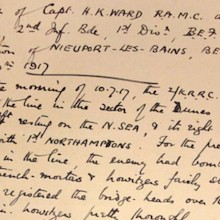 of Capt. H.K. WARD R.A.M.C.
2nd Inf. Bde, 1st Divn, B.E.F
of NIEUPORT-LES-BAINS, BE
1917
he morning of 10.7.17, the 2/K.R.R.C.
the line in the sector of the Dunes
resting on the N. SEA, & its right
with 1st NORTHAMPTONS. For the
in the line, the enemy had bom
ench-mortars & howitzers fairly
registered the bridge-heads over
howitzers pretty thorough